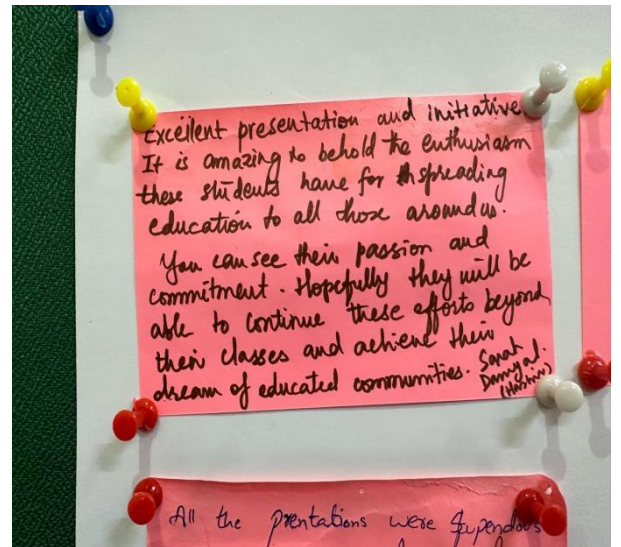 Excellent presentation and initiative
It is amazing to behold the enthusiasm
these students have for spreading
education to all those around us.
You can see their passion and
commitment. Hopefully they will be
able to continue these efforts beyond
their classes and achieve their
dream of educated communities.
Sarah
Danyal.
All the prentations were stupendous